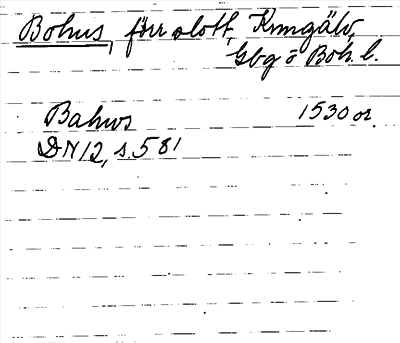 Bohus, förr slott, Kungälv,
Gbg o Boh. l.
Bahws 1530 or.
DN 12, s. 581